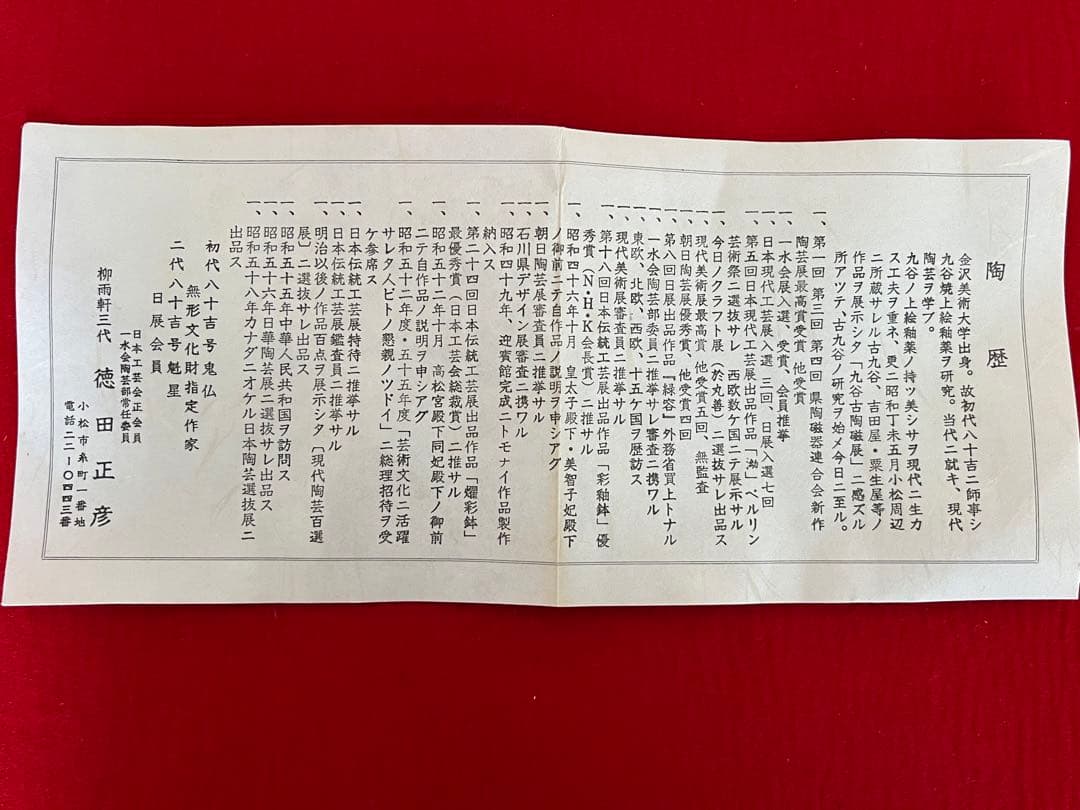 陶歴
金沢美術大学出身。故初代八十吉ニ師事シ
九谷焼上絵釉薬ヲ研究。当代ニ就キ、現代
陶芸ヲ学ブ。
九谷ノ上絵釉薬ノ持ッ美シサヲ現代ニ生カ
スエ夫ヲ重ネ、更ニ昭和丁未五月小松周辺
ニ所蔵サレル古九谷、吉田屋・粟生屋等ノ
作品ヲ展示シタ「九谷古陶磁展」ニ感ズル
所アツテ、古九谷ノ研究ヲ始メ今日ニ至ル。
一、第一回 第三回 第四回 県陶磁器連合会新作
陶芸展最高賞受賞 他受賞
一、一水会展入選、受賞、会員推挙
一、日本現代工芸展入選 三回、日展入選七回
一、第五回日本現代工芸展出品作品「泑」ベルリン
芸術祭ニ選抜サレ 西欧数ケ国ニテ展示サル
一、今日ノクラフト展(於丸善)ニ選抜サレ出品ス
一、現代美術展最高賞 他受賞五回、無監査
一、朝日陶芸展優秀賞、他受賞四回
一、第八回日展出品作品「緑容」外務省買上トナル
一、一水会陶芸部委員ニ推挙サレ審査ニ携ワル
一、東欧、北欧、西欧、十五ケ国ヲ歴訪ス
一、現代美術展審査員ニ推挙サル
一、第十八回日本伝統工芸展出品作品「彩釉鉢」優
秀賞(N・H・K会長賞)ニ推サル
一、昭和四十六年十月 皇太子殿下・美智子妃殿下
ノ御前ニテ自作品ノ説明ヲ申シアグ
一、朝日陶芸展審査員ニ推挙サル
一、石川県デザイン展審査ニ携ワル
一、昭和四十九年、迎賓館完成ニトモナイ作品製作
納入ス
一、第二十四回日本伝統工芸展出品作品「燿彩鉢」
最優秀賞(日本工芸会総裁賞)ニ推サル
一、昭和五十二年十月 高松宮殿下同妃殿下ノ御前
ニテ自作品ノ説明ヲ申シアグ
一、昭和五十二年度・五十五年度「芸術文化ニ活躍
サレタ人ビトノ懇親ノツドイ」ニ総理招待ヲ受
ケ参席ス
一、日本伝統工芸展特待ニ推挙サル
一、日本伝統工芸展鑑査員ニ推挙サル
一、明治以後ノ作品百点ヲ展示シタ〔現代陶芸百選
展〕ニ選抜サレ出品ス
一、昭和五十五年中華人民共和国ヲ訪問ス
一、昭和五十六年日華陶芸展ニ選抜サレ出品ス
一、昭和五十八年カナダニオケル日本陶芸選抜展ニ
出品ス
初代八十吉号鬼仏
無形文化財指定作家
二代八十吉号魁星
日展会員
柳雨軒三代 徳田正彦
日本工芸会正会員
一水会陶芸部常任委員
小松市糸町一番地
電話二二-〇四四三番